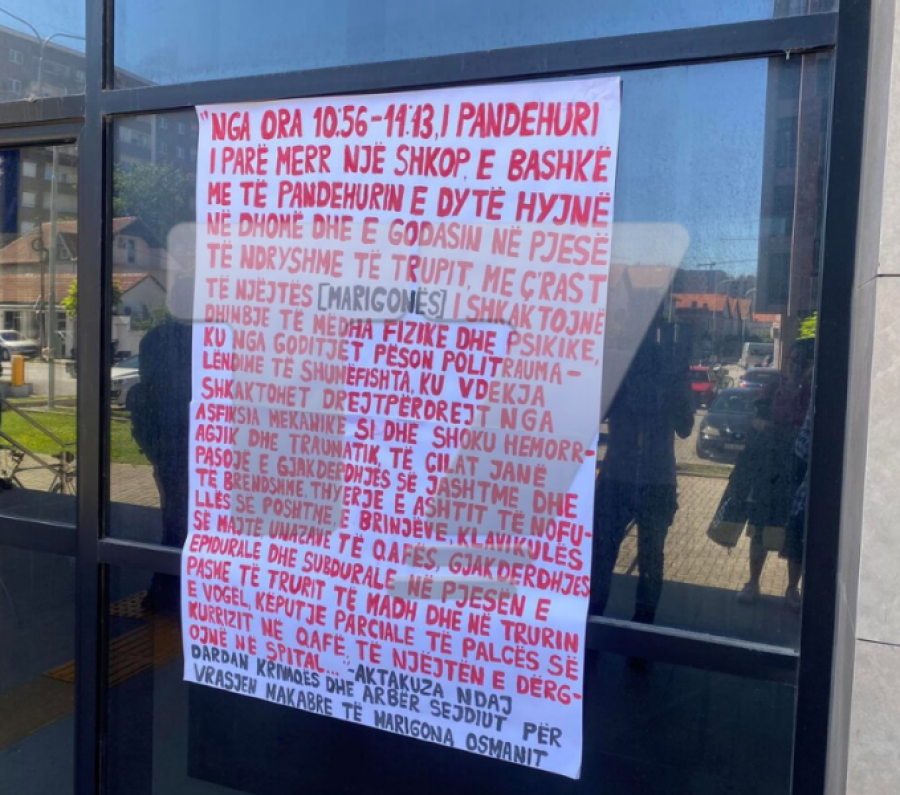 "NGA ORA 10:56-11:13, I PANDEHURI
I PARË MERR NJË SHKOP, E BASHKË
ME TË PANDEHURIN E DYTË HYJNË
NË DHOMË DHE E GODASIN NË PJESË
TË NDRYSHME TË TRUPIT, ME Ç'RAST
TË NJËJTËS [MARIGONËS] I SHKAKTOJNË
DHIMBJE TË MËDHA FIZIKE DHE PSIKIKE,
KU NGA GODITJET PËSON POLITRAUMA-
LËNDIME TË SHUMËFISHTA, KU VDEKJA
SHKAKTOHET DREJTPËRDREJT NGA
ASFIKSIA MEKANIKE SI DHE SHOKU HEMORR-
AGJIK DHE TRAUMATIK, TË CILAT JANË
PASOJË E GJAKDERDHJES SË JASHTME DHE
TË BRENDSHME, THYERJE E ASHTIT TË NOFU-
LLËS SË POSHTME, E BRINJËVE, KLAVIKULËS
SË MAJTË UNAZAVE TË QAFËS, GJAKDERDHJES
EPIDURALE DHE SUBDURALE NË PJESËN E
PASME TË TRURIT TË MADH DHE NË TRURIN
E VOGËL, KËPUTJE PARCIALE TË PALCËS SË
KURRIZIT NË QAFË, TË NJËJTËN E DËRG-
OJNË NË SPITAL..." -AKTAKUZA NDAJ
DARDAN KRIVAQËS DHE ARBËR SEJDIUT PËR
VRASJEN MAKABRE TË MARIGONA OSMANIT